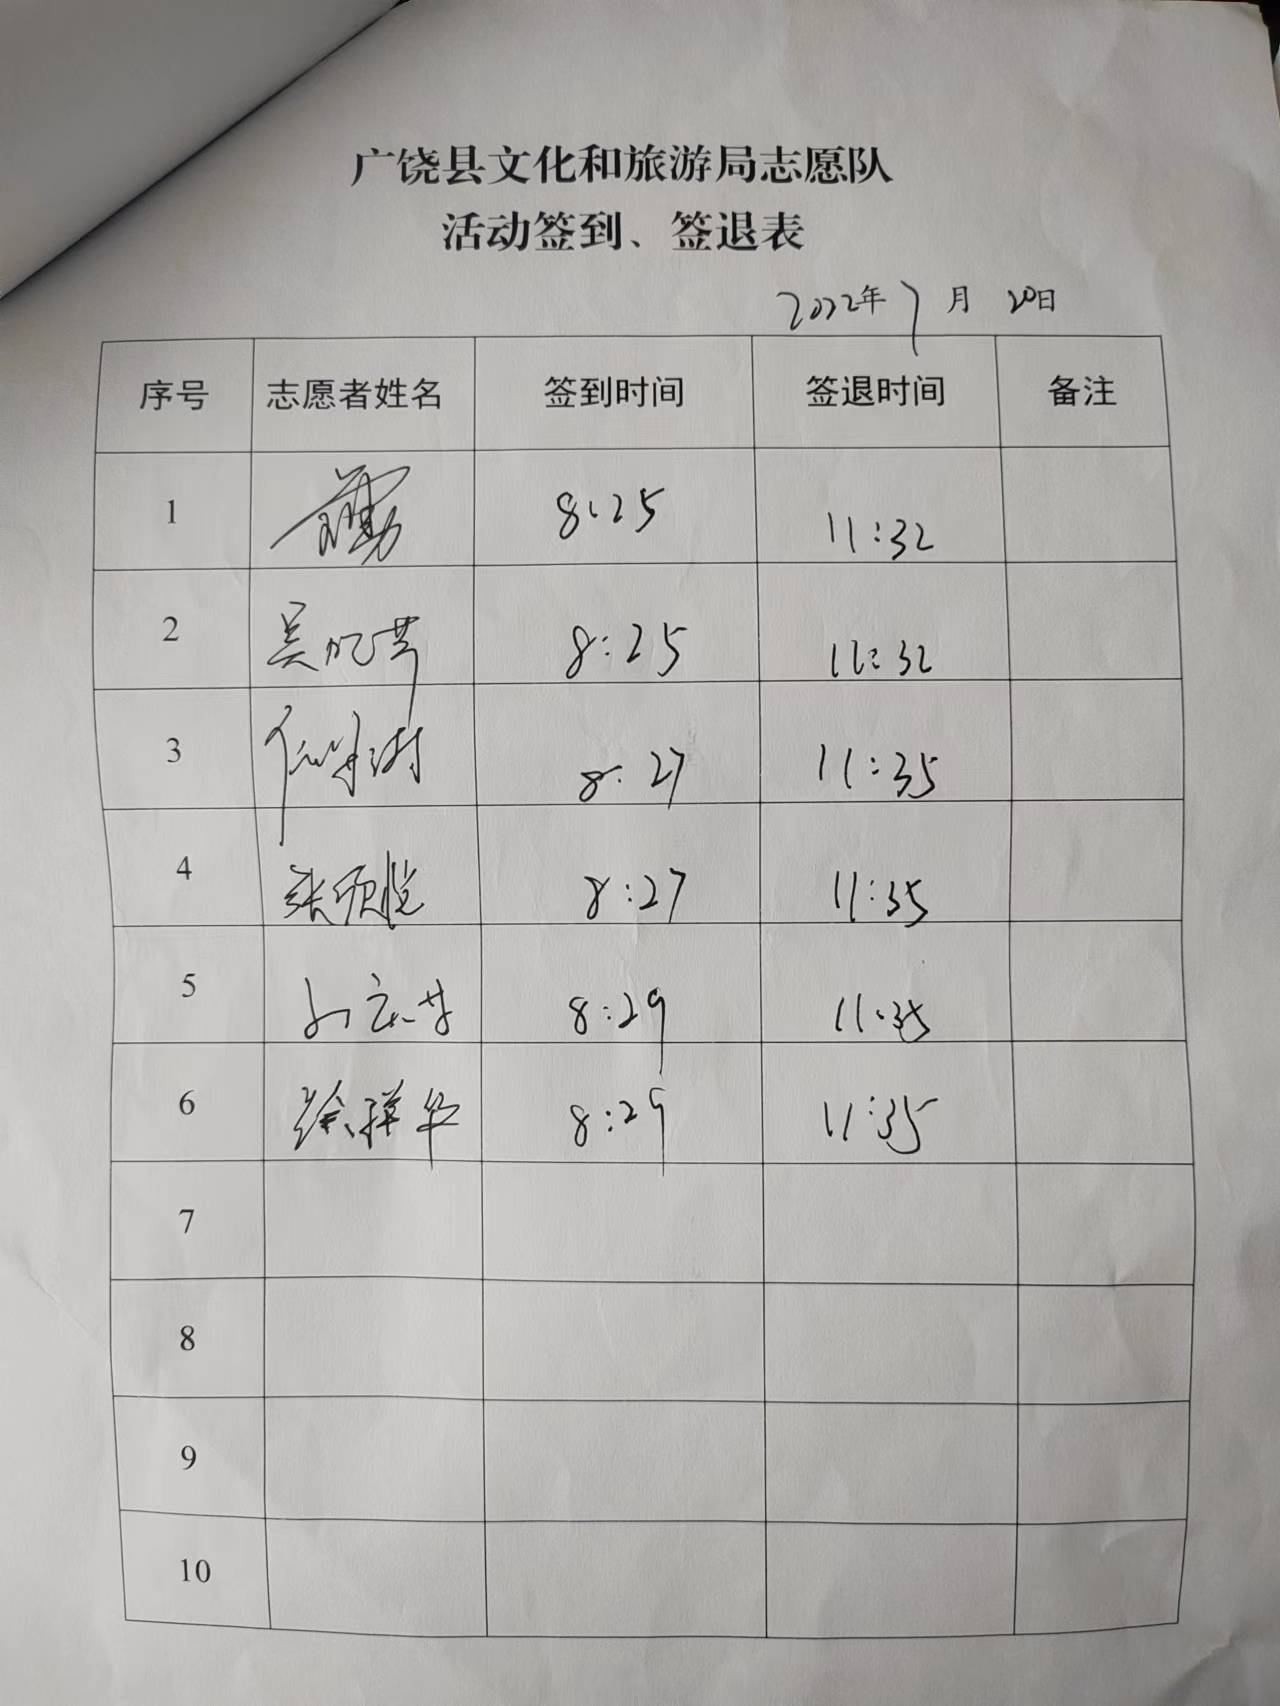 广饶县文化和旅游局志愿队
活动签到、签退表
2022年7月20日
序号 志愿者姓名 签到时间 签退时间 备注
1 8:25 11:32
2 8:25 11:32
3 8:27 11:35
4 8:27 11:35
5 8:29 11:35
6 徐祥华 8:29 11:35
7
8
9
10